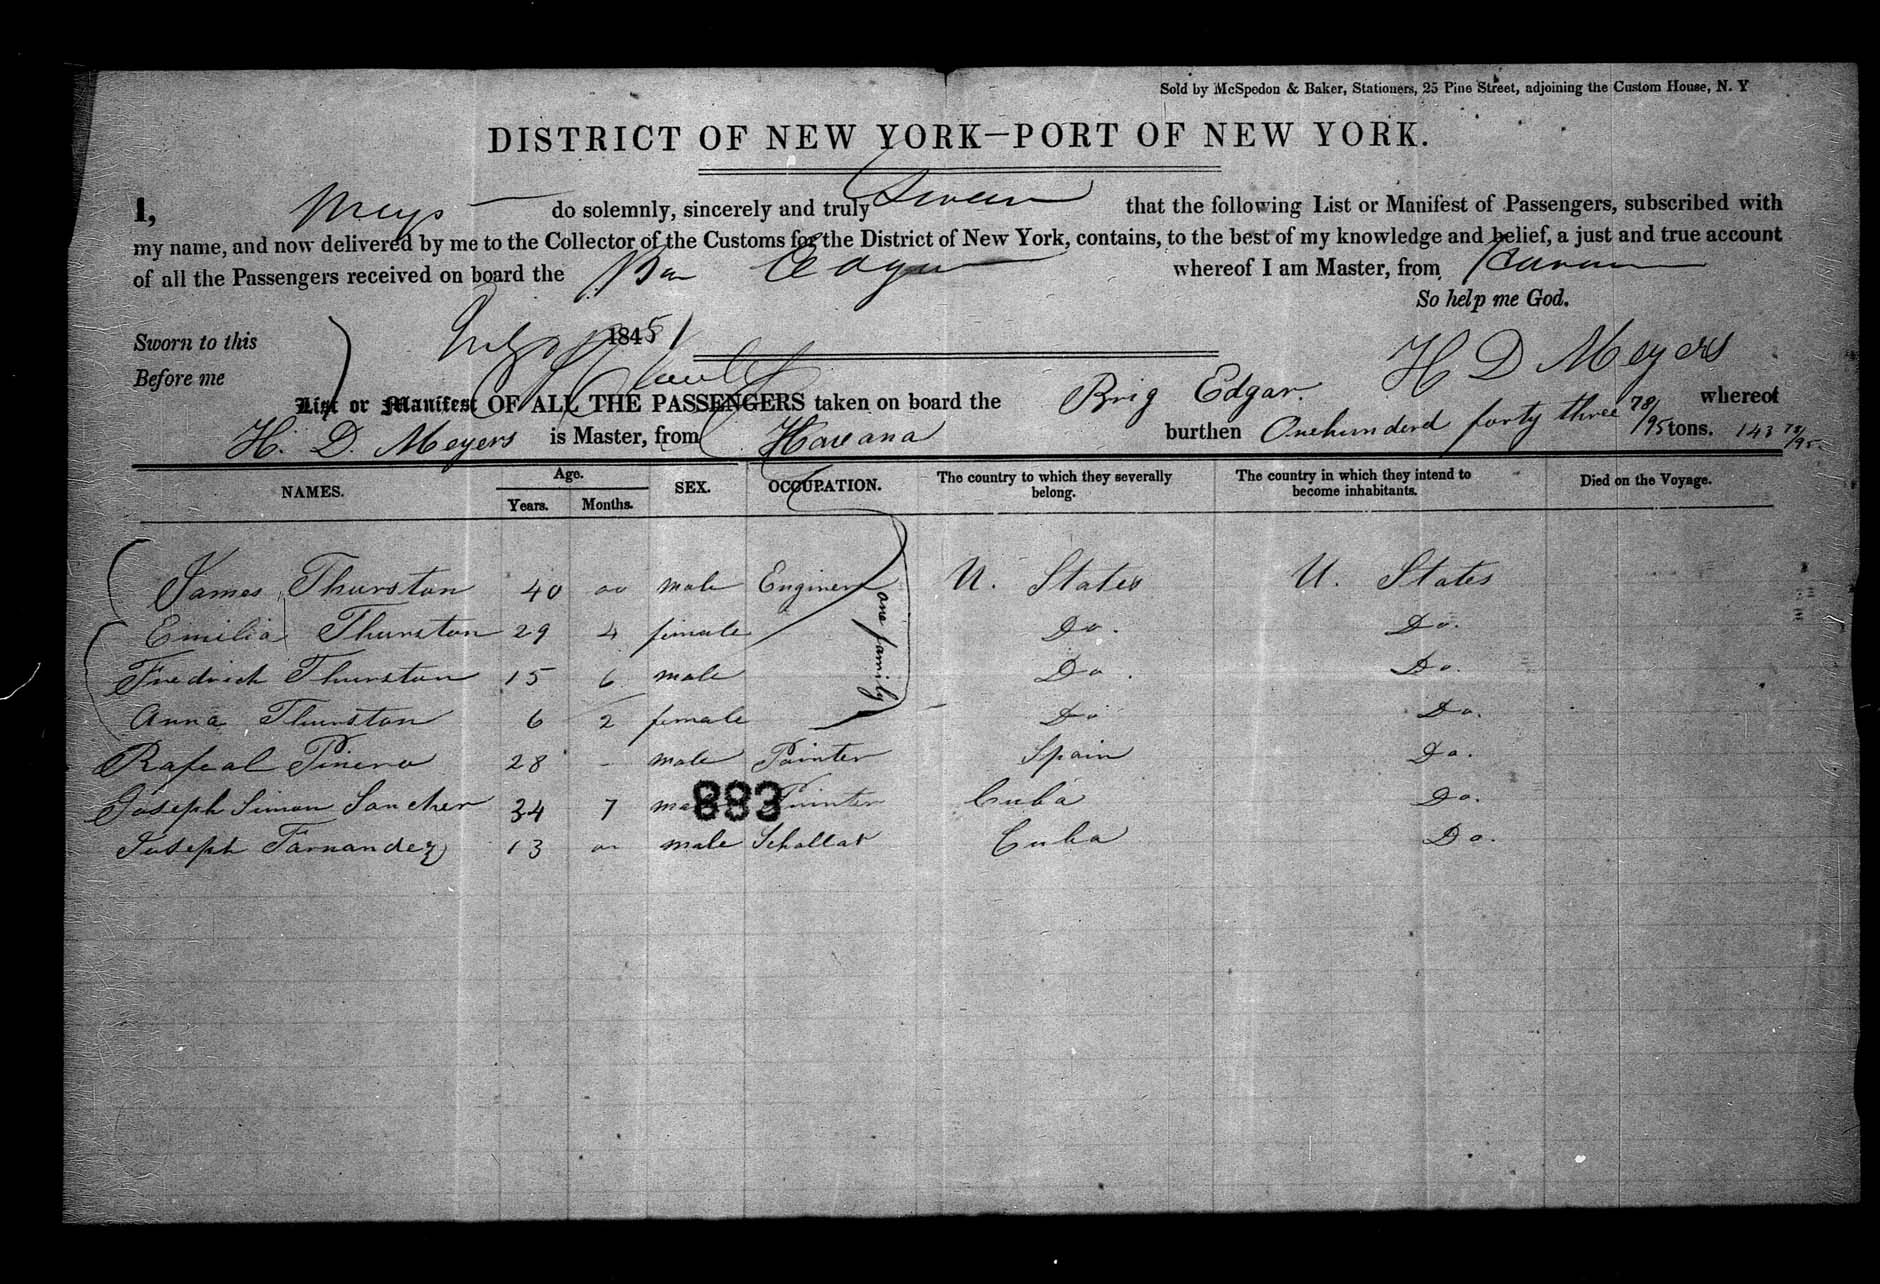 Sold by McSpedon & Baker, Stationers, 25 Pine Street, adjoining the Custom House, N. Y
DISTRICT OF NEW YORK—PORT OF NEW YORK.
I, do solemnly, sincerely and truly Swear that the following List or Manifest of Passengers, subscribed with
my name, and now delivered by me to the Collector of the Customs for the District of New York, contains, to the best of my knowledge and belief, a just and true account
of all the Passengers received on board the Edgar whereof I am Master, from Havana
So help me God.
Sworn to this 1851
Before me
H D Meyers
List or Manifest OF ALL THE PASSENGERS taken on board the Brig Edgar. whereof
H. D. Meyers is Master, from Havana burthen Onehunderd forty three 78/95 tons. 143 78/95
NAMES. Age. Years. Months. SEX. OCCUPATION. The country to which they severally belong. The country in which they intend to become inhabitants. Died on the Voyage.
James Thurston 40 oo male Enginer U. States U. States
Emilia Thurston 29 4 female Do. Do.
Fredrich Thurston 15 6 male Do. Do.
Anna Thurston 6 2 female Do Do.
one family
Rafeal Pinero 28 - male Painter Spain Do.
Joseph Simon Sancher 34 7 male Painter Cuba Do.
883
Joseph Farnandez 13 oo male Schollar Cuba Do.